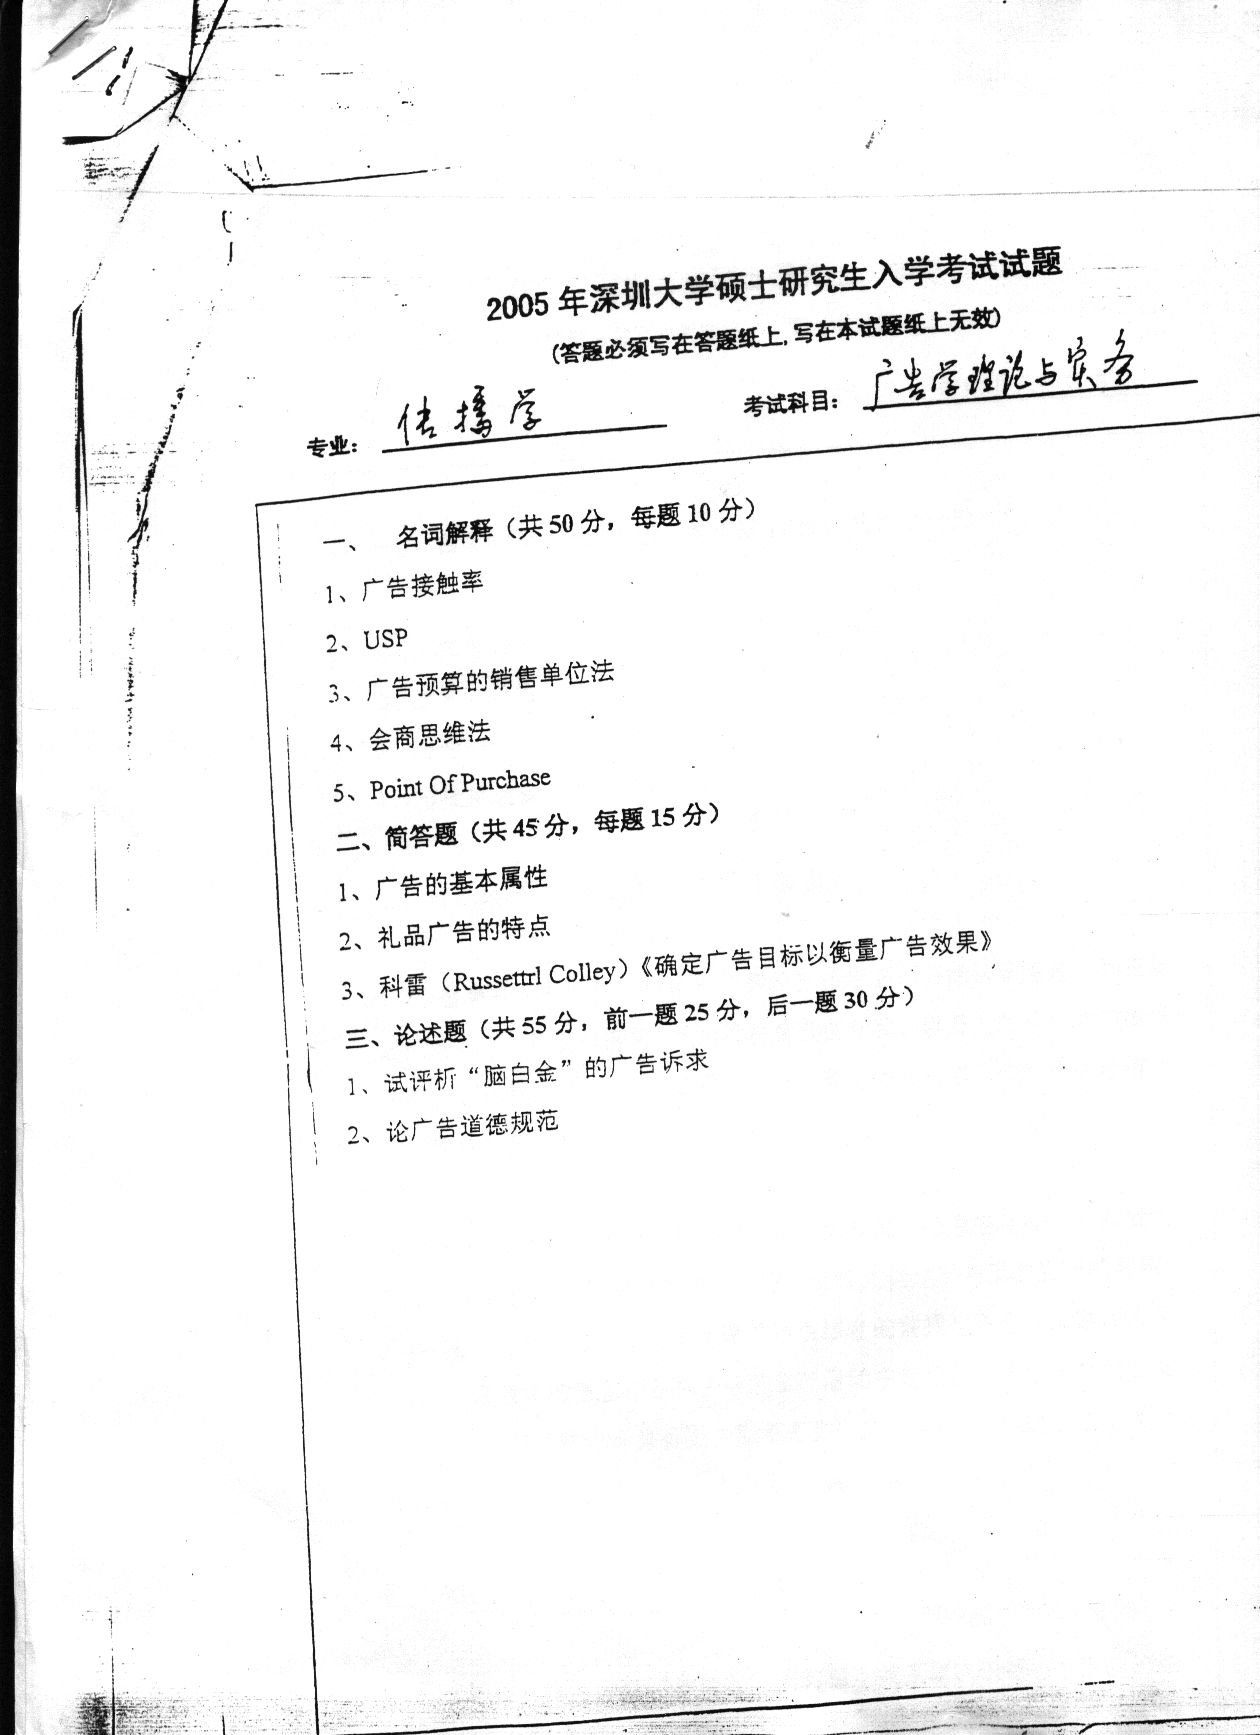 2005 年深圳大学硕士研究生入学考试试题
(答题必须写在答题纸上,写在本试题纸上无效)
专业: 传播学 考试科目: 广告学理论与实务
一、 名词解释（共 50 分，每题 10 分）
1、广告接触率
2、USP
3、广告预算的销售单位法
4、会商思维法
5、Point Of Purchase
二、简答题（共 45 分，每题 15 分）
1、广告的基本属性
2、礼品广告的特点
3、科雷（Russettrl Colley）《确定广告目标以衡量广告效果》
三、论述题（共 55 分，前一题 25 分，后一题 30 分）
1、试评析“脑白金”的广告诉求
2、论广告道德规范